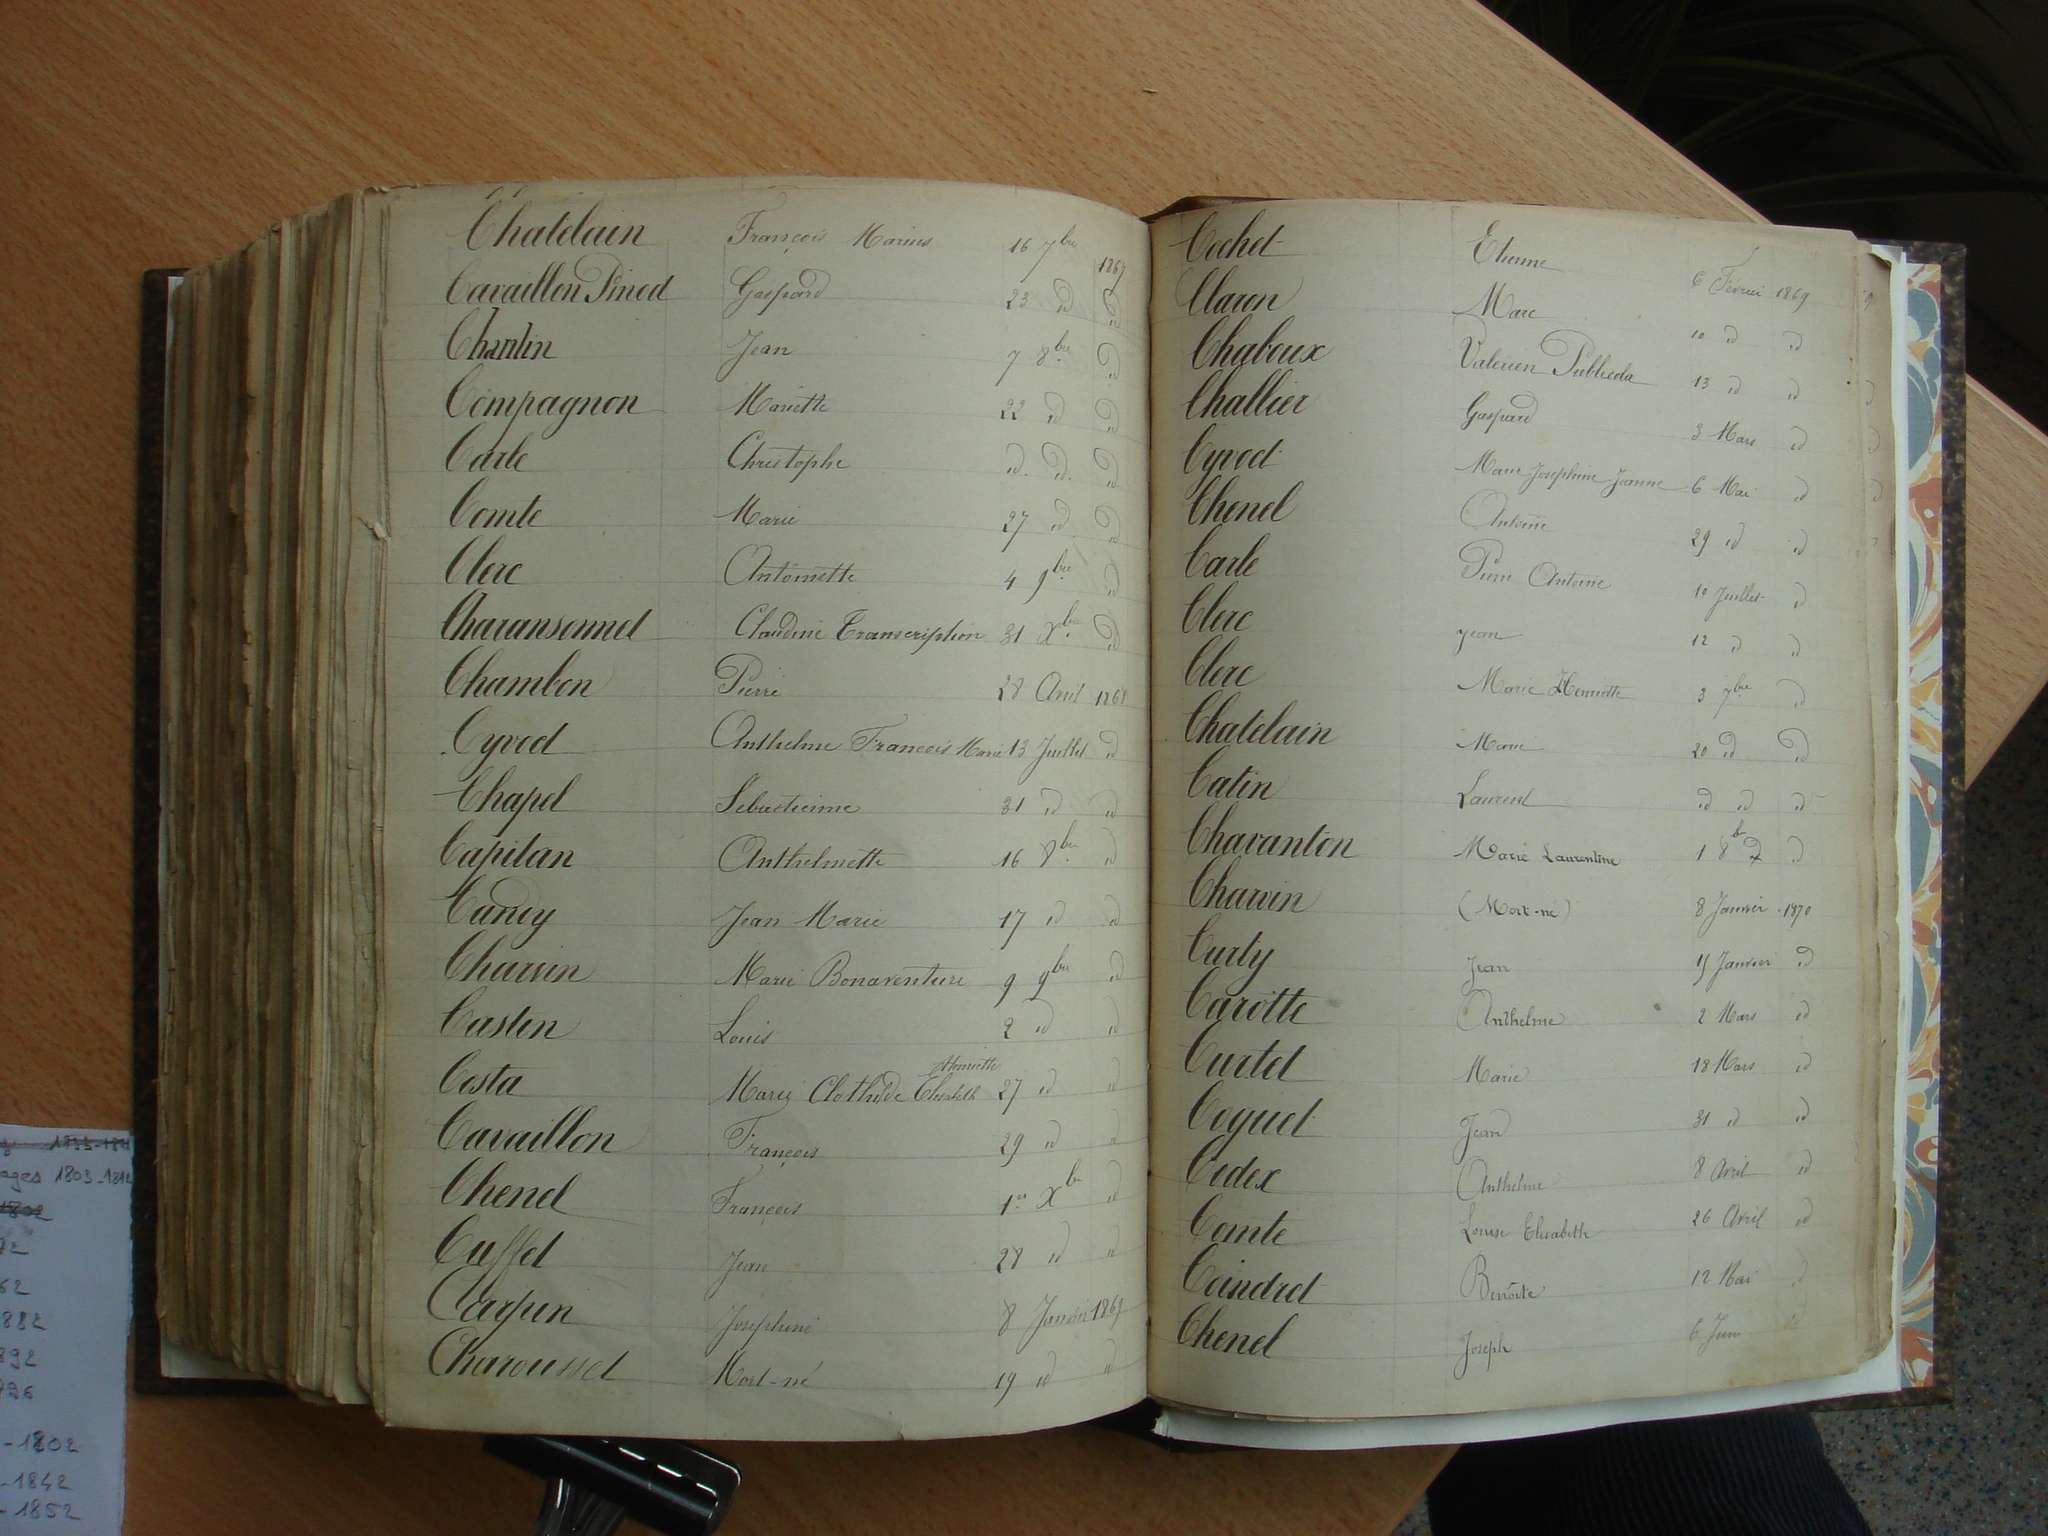 Chatelain François Marius 16 7bre 1867
Cavaillon Pined Gaspard 23 id id
Chanlin Jean 7 8bre id
Compagnon Mariette 22 id id
Carle Christophe id. id. id
Comte Marie 27 id id
Clerc Antoinette 4 9bre id
Charansonnet Claudine Transcription 31 Xbre id
Chambon Pierre 28 Avril 1868
Cyvoct Anthelme François Marie 13 Juillet id
Chapel Sebastienne 31 id id
Capitan Anthelmette 16 8bre id
Cundy Jean Marie 17 id id
Charvin Marie Bonaventure 9 9bre id
Custen Louis 2 id id
Henriette
Costa Marie Clothilde Elisabeth 27 id id
Cavaillon François 29 id id
Chenel François 1er Xbre id
Cuffet Jean 28 id id
Carpin Josephine 8 Janvier 1869
Charousset Mort-né 19 id id
Cochet Etienne 6 Février 1869
Claron Marc 10 id id
Chaboux Valerien 13 id id
Challier Gaspard 3 Mars id
Cyvoct Marie Josephine Jeanne 6 Mai id
Chenel Antoine 29 id id
Carle Pierre Antoine 10 Juillet id
Clerc Jean 12 id id
Clerc Marie Henriette 3 7bre id
Chatelain Marie 20 id id
Catin Laurent id id id
Charanton Marie Laurentine 1 8b id
Charvin (Mort-né) 8 Janvier 1870
Curty Jean 15 Janvier id
Carotte Anthelme 2 Mars id
Curtet Marie 18 Mars id
Coquet Jean 31 id id
Codex Anthelme 8 Avril id
Comte Louise Elisabeth 26 Avril id
Coindret Benoîte 12 Mai id
Chenel Joseph 6 Juin id
1803-1812
1802
62
882
892
-1802
-1842
-1852